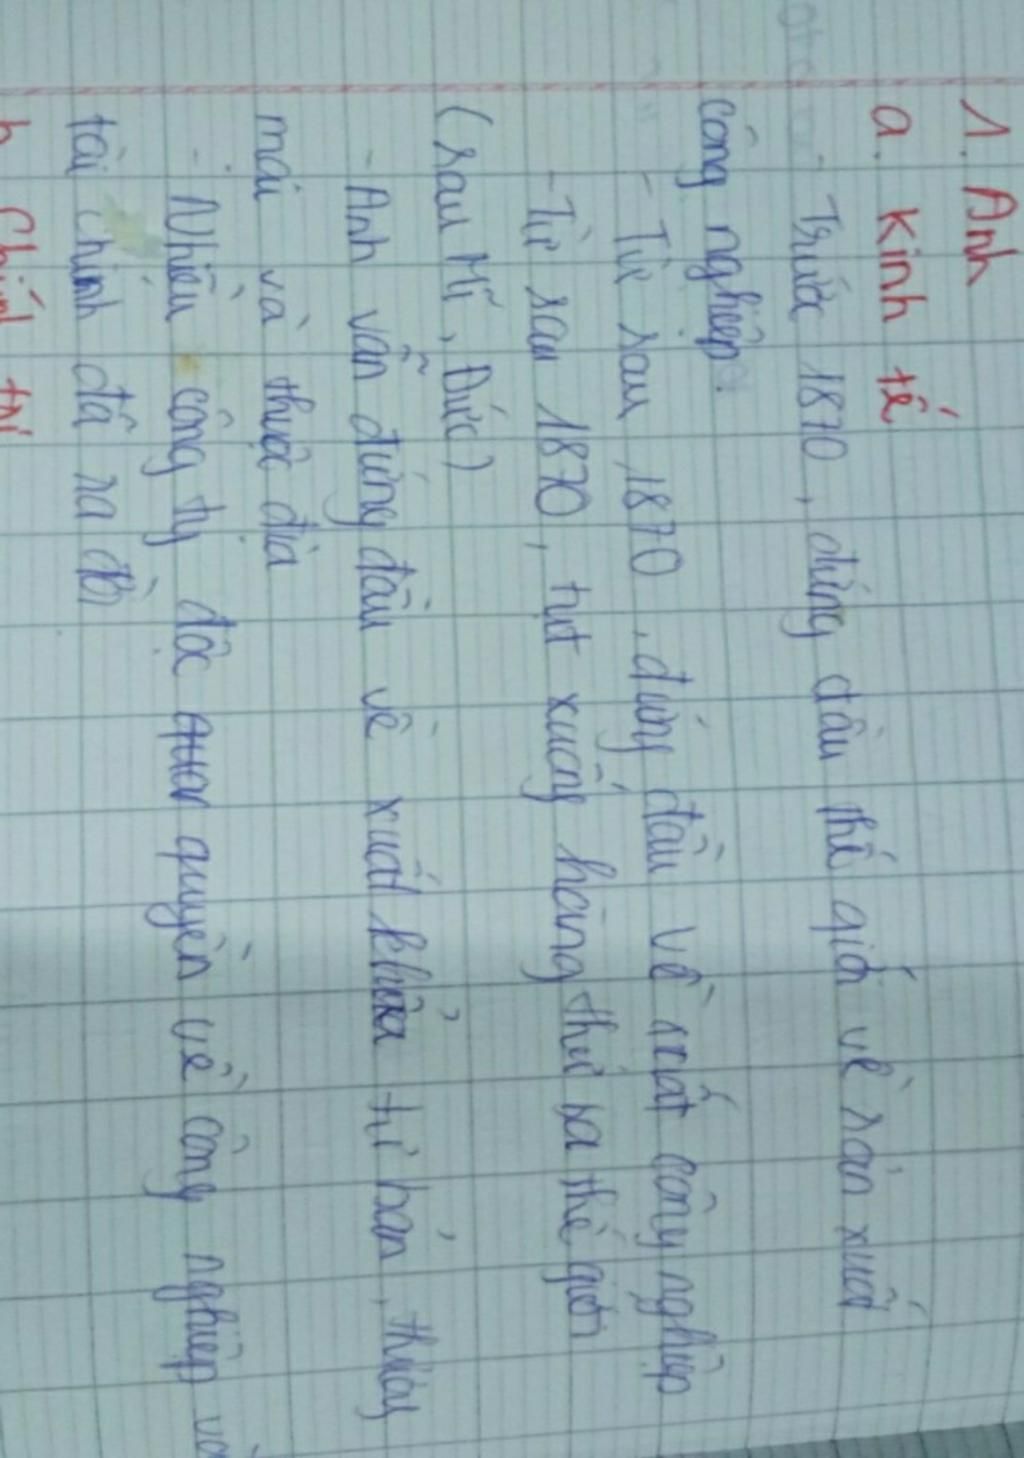 1. Anh
a. Kinh tế
- Trước 1870, đứng đầu thế giới về sản xuất
công nghiệp.
- Từ sau 1870, đứng đầu về xuất công nghiệp
- Từ sau 1870, tụt xuống hàng thứ ba thế giới
(sau Mĩ, Đức)
- Anh vẫn đứng đầu về xuất khẩu tư bản, thương
mại và thuộc địa
- Nhiều công ty độc quyền về công nghiệp và
tài chính đã ra đời